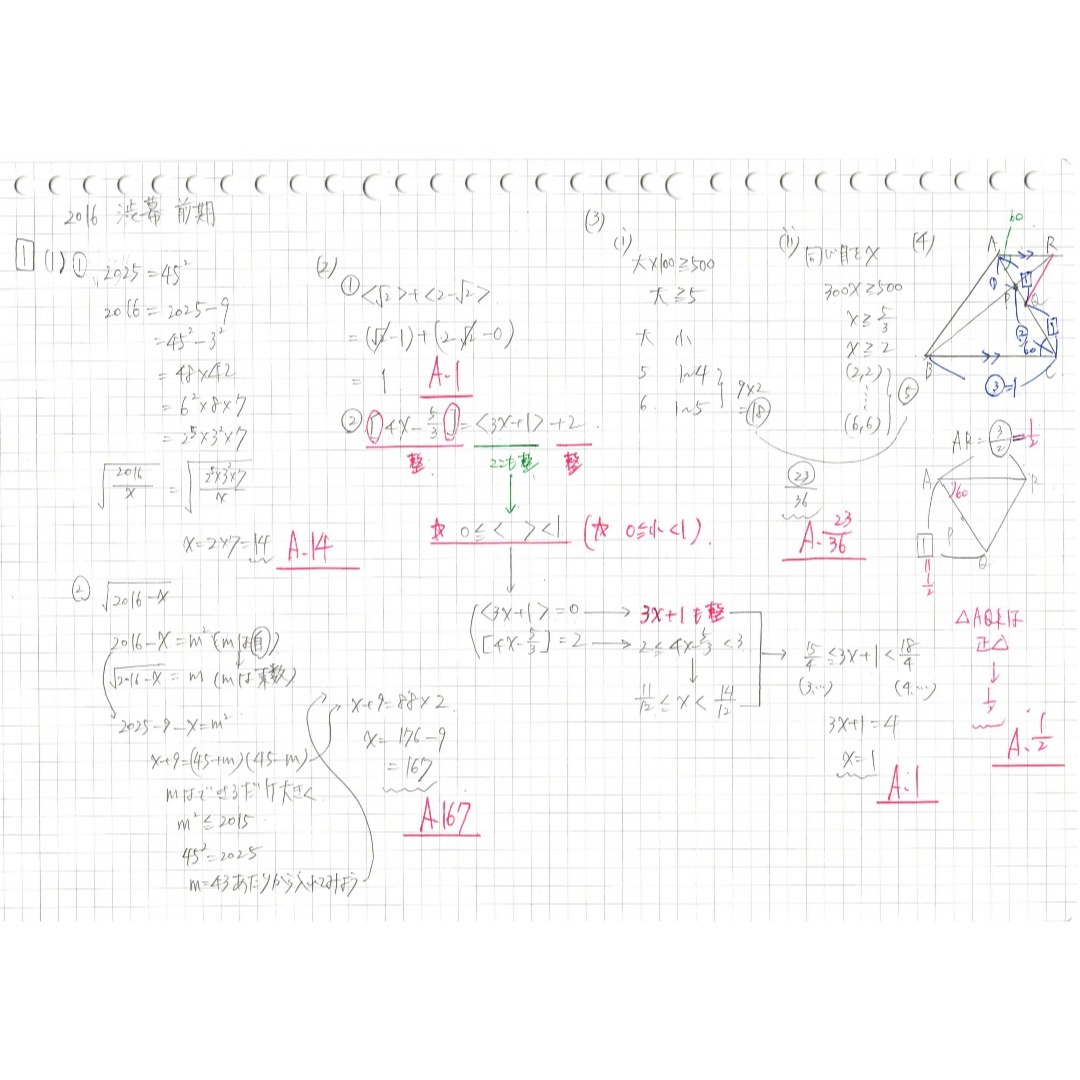 2016 渋幕 前期
1 (1) ①
2025 = 45²
2016 = 2025 - 9
= 45² - 3²
= 48 × 42
= 6² × 8 × 7
= 2⁵ × 3² × 7
√(2016/x) = √(2⁵×3²×7/x)
x = 2×7 = 14 A.14
② √(2016-x)
2016 - x = m² (mは自)
√(2016-x) = m (mは素数)
2025 - 9 - x = m²
x + 9 = (45+m)(45-m)
mはできるだけ大きく
m² ≤ 2015
45² = 2025
m = 43あたりから入れてみよう
x + 9 = 88 × 2
x = 176 - 9
= 167
A.167
(2)
① <√2> + <2-√2>
= (√2 - 1) + (2 - √2 - 0)
= 1 A.1
② [4x - 5/3] = <3x+1> + 2
整 ここも整 整
☆ 0 ≤ < > < 1 (☆ 0 ≤ 小 < 1)
<3x+1> = 0 → 3x+1も整
[4x - 5/3] = 2 → 2 ≤ 4x - 5/3 < 3
11/12 ≤ x < 14/12
15/4 ≤ 3x+1 < 18/4
(3,…) (4,…)
3x+1 = 4
x = 1
A.1
(3)
(i)
大×100 ≥ 500
大 ≥ 5
大 小
5 1~4
6 1~5
9×2
= 18
(ii) 同じ目をx
300x ≥ 500
x ≥ 5/3
x ≥ 2
(2,2)
⋮
(6,6)
⑤
23/36
A.23/36
(4)
60
A R
P
Q
60
B C
③=1
AR = 3/2 = 1/2
A R
60
P
Q
1/2
△AQRは
正△
1/2
A.1/2